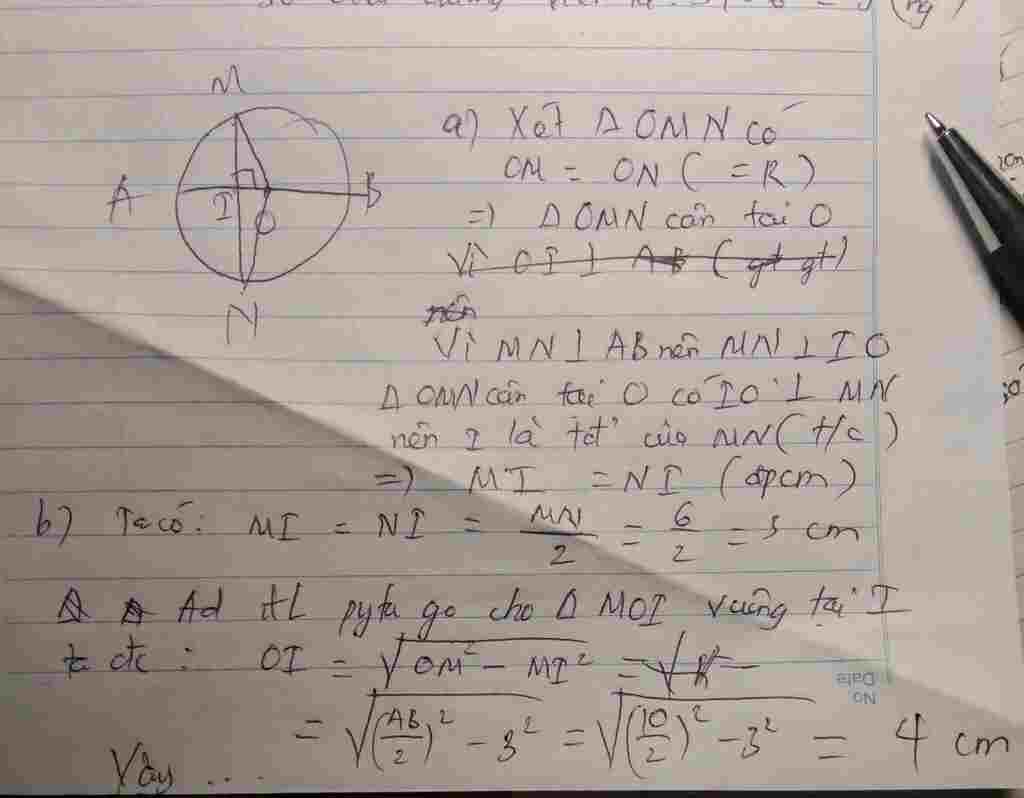 M
A
I
O
B
N
a) Xét Δ OMN có
OM = ON ( = R )
=> Δ OMN cân tại O
Vì OI ⊥ AB ( gt gt)
nên
Vì MN ⊥ AB nên MN ⊥ IO
Δ OMN cân tại O có IO ⊥ MN
nên I là tđ' của MN ( t/c )
=> MI = NI (đpcm)
b) Ta có: MI = NI = MN/2 = 6/2 = 3 cm
Ad ĐL pyta go cho Δ MOI vuông tại I
ta đc : OI = √(OM² - MI²) = √R
= √((AB/2)² - 3²) = √((10/2)² - 3²) = 4 cm
Vậy ...
No
Date